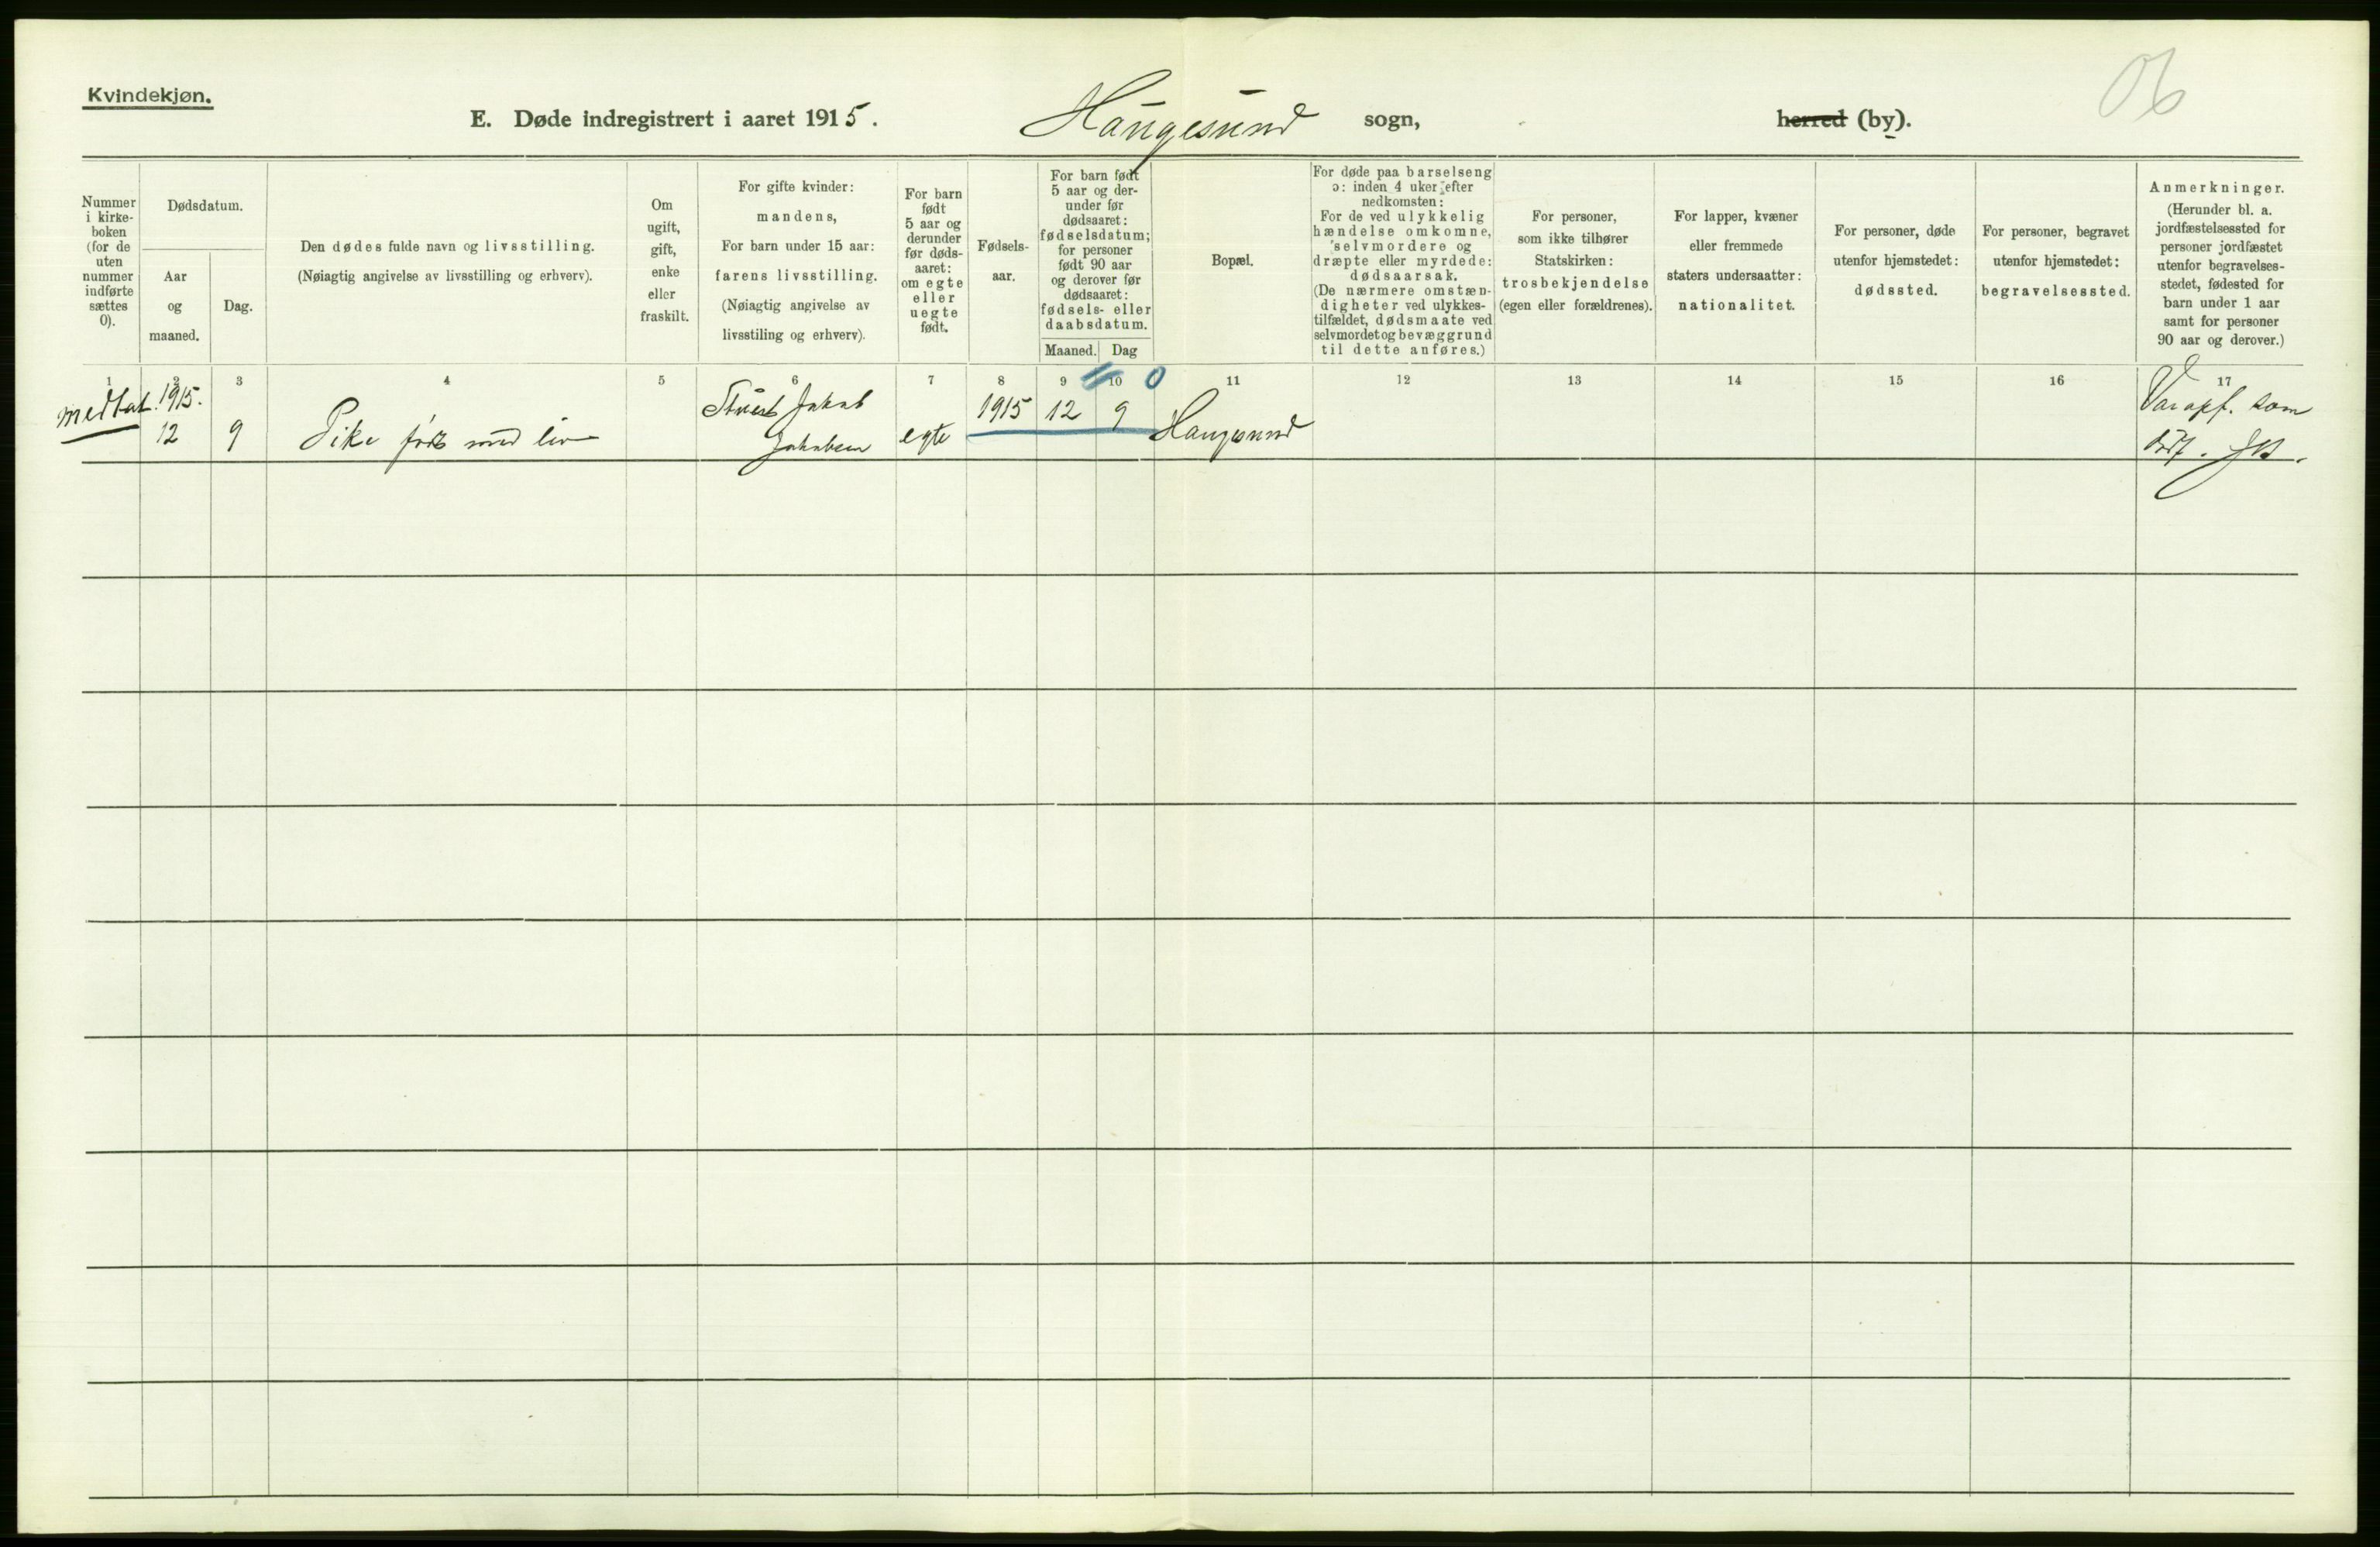 Kvindekjøn.
E. Døde indregistrert i aaret 1915. Haugesund sogn, herred (by).
06
Nummer
i kirke-
boken
(for de
uten
nummer
indførte
sættes
0).
Dødsdatum.
Aar
og
maaned.
Dag.
Den dødes fulde navn og livsstilling.
(Nøiagtig angivelse av livsstilling og erhverv).
Om
ugift,
gift,
enke
eller
fraskilt.
For gifte kvinder:
mandens,
For barn under 15 aar:
farens livsstilling.
(Nøiagtig angivelse av
livsstiling og erhverv).
For barn
født
5 aar og
derunder
før døds-
aaret:
om egte
eller
uegte
født.
Fødsels-
aar.
For barn født
5 aar og der-
under før
dødsaaret:
fødselsdatum;
for personer
født 90 aar
og derover før
dødsaaret:
fødsels- eller
daabsdatum.
Maaned. Dag
Bopæl.
For døde paa barselseng
ɔ: inden 4 uker efter
nedkomsten:
For de ved ulykkelig
hændelse omkomne,
selvmordere og
dræpte eller myrdede:
dødsaarsak.
(De nærmere omstæn-
digheter ved ulykkes-
tilfældet, dødsmaate ved
selvmordet og bevæggrund
til dette anføres.)
For personer,
som ikke tilhører
Statskirken:
trosbekjendelse
(egen eller forældrenes).
For lapper, kvæner
eller fremmede
staters undersaatter:
nationalitet.
For personer, døde
utenfor hjemstedet:
dødssted.
For personer, begravet
utenfor hjemstedet:
begravelsessted.
Anmerkninger.
(Herunder bl. a.
jordfæstelsessted for
personer jordfæstet
utenfor begravelses-
stedet, fødested for
barn under 1 aar
samt for personer
90 aar og derover.)
1 2 3 4 5 6 7 8 9 10 11 12 13 14 15 16 17
0
medtat. 1915.
12 9 Pike født med liv
Jakob
Jakobsen
egte 1915 12 9 Haugesund
Var opf. som